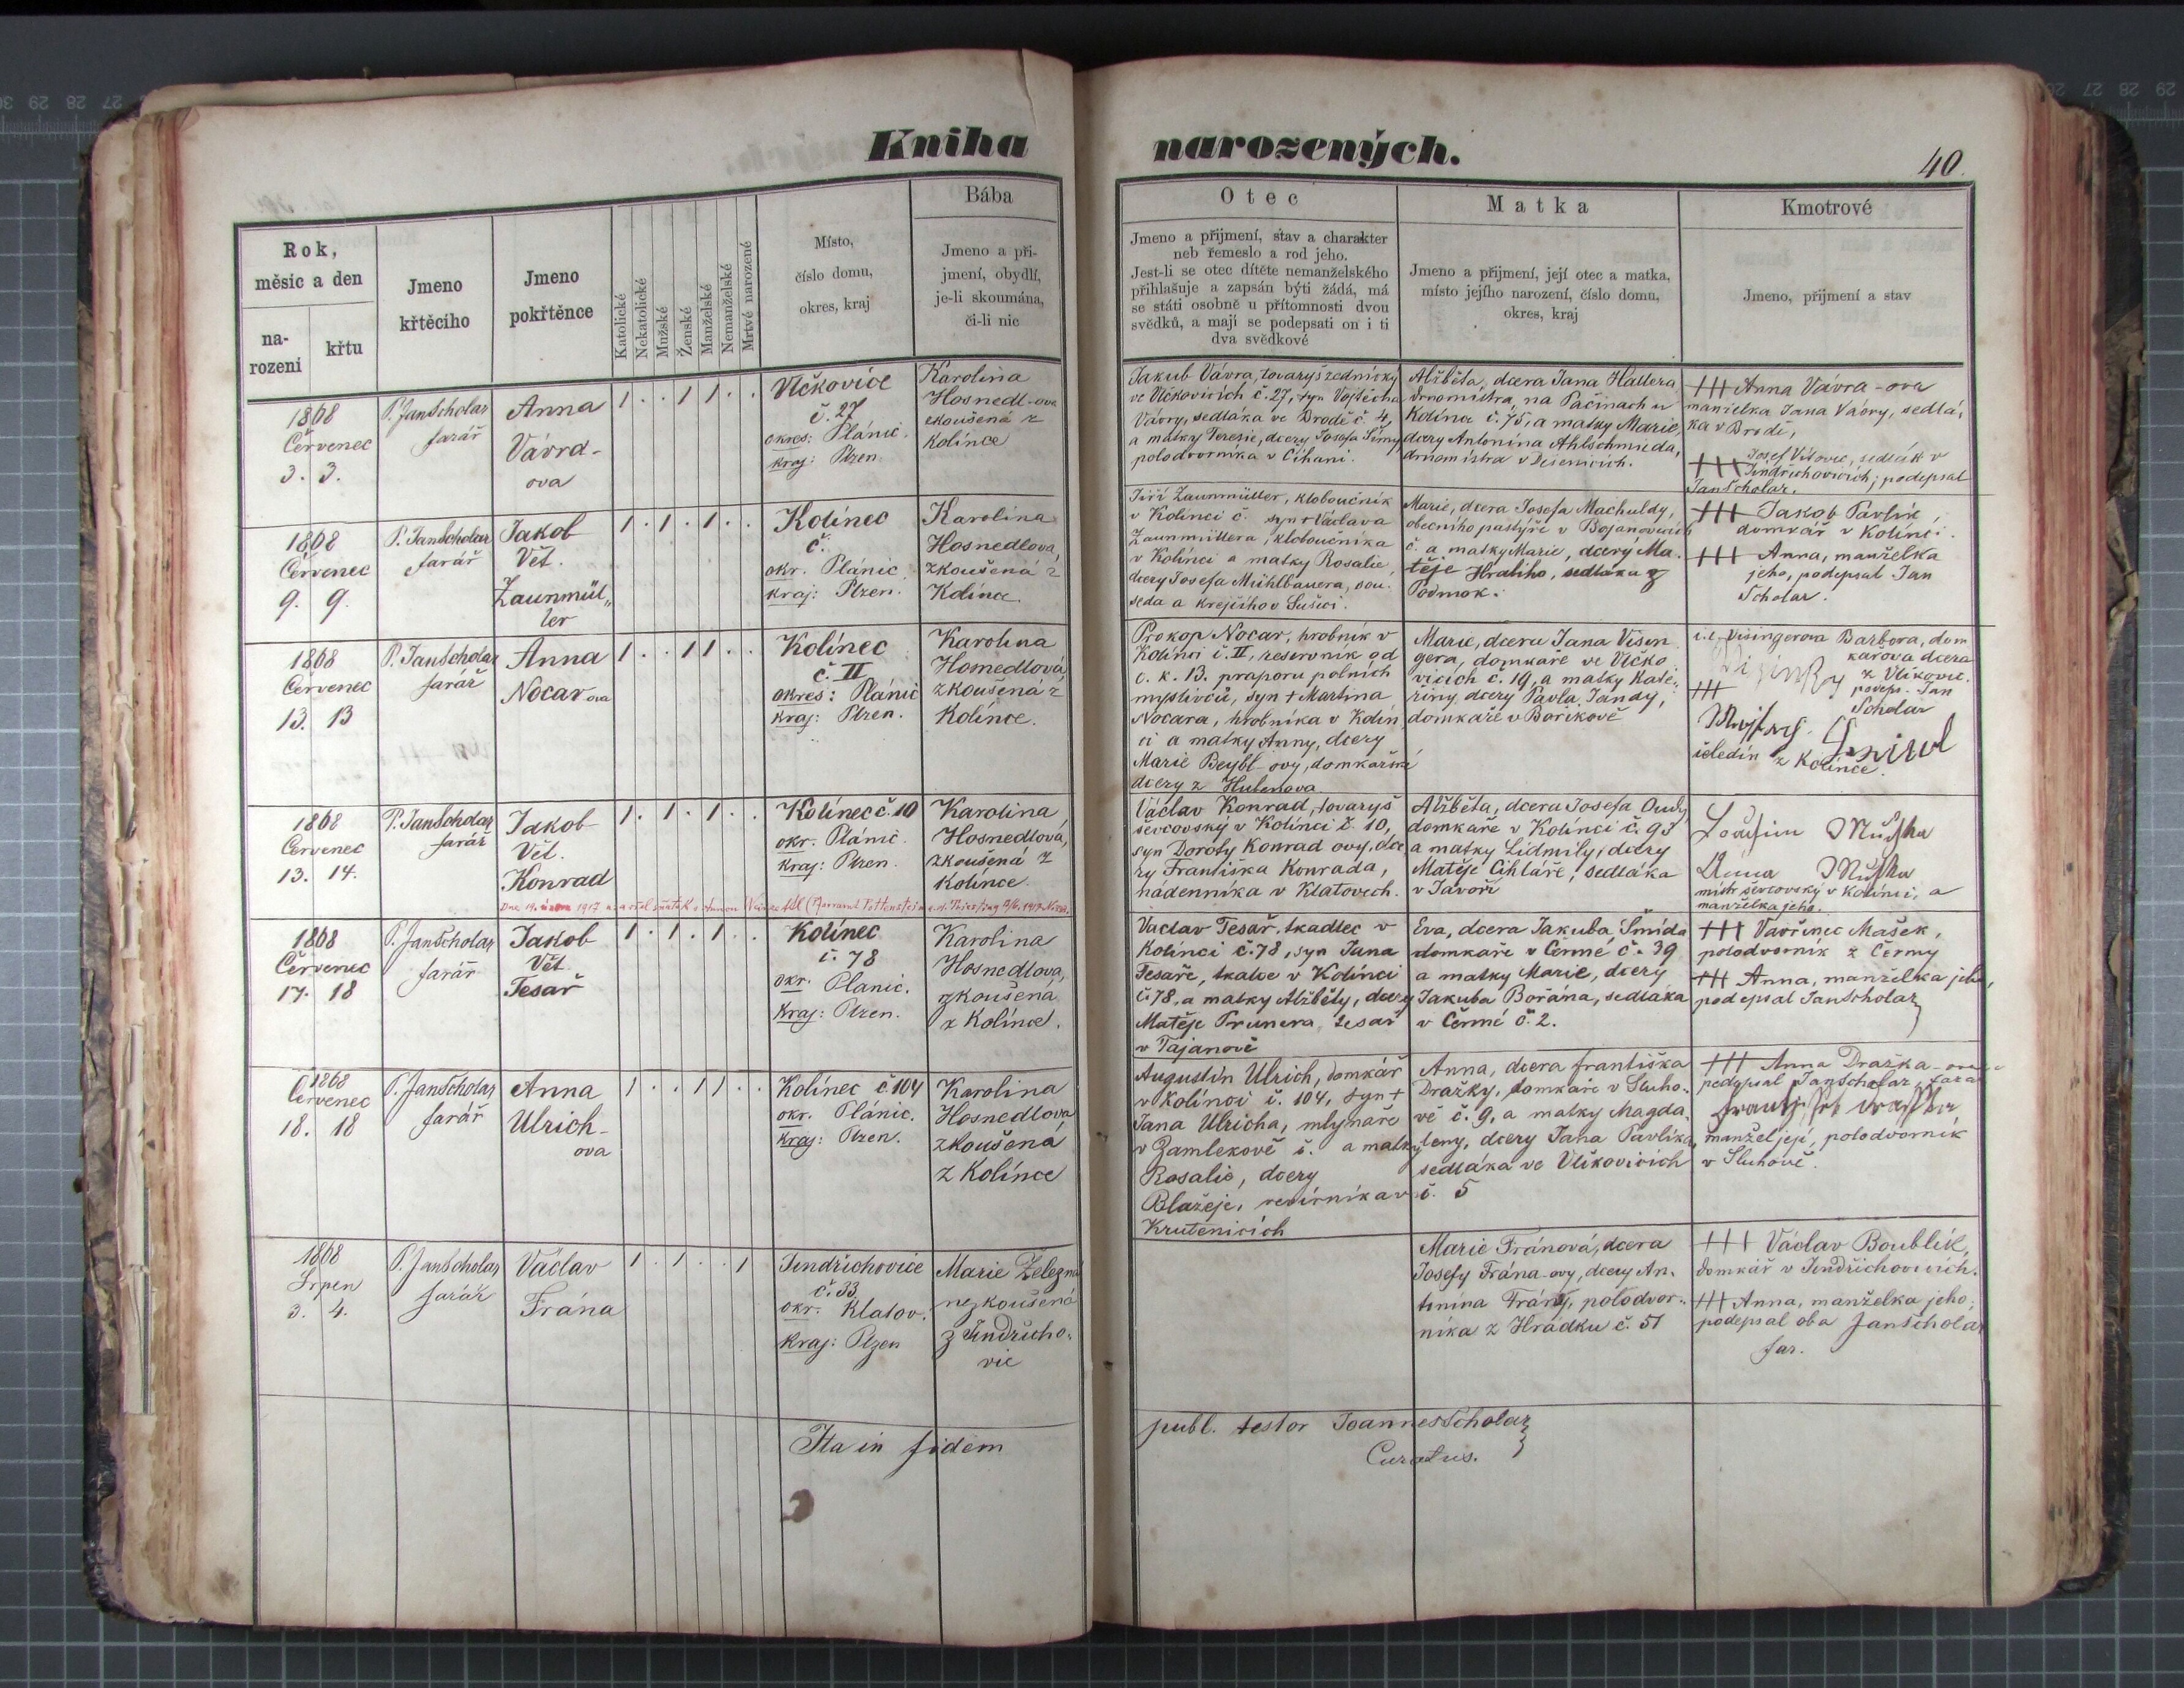 Kniha narozených.
40.
Rok,
měsíc a den
na-
rození
křtu
Jmeno
křtěcího
Jmeno
pokřtěnce
Katolické
Nekatolické
Mužské
Ženské
Manželské
Nemanželské
Mrtvě narozené
Místo,
číslo domu,
okres, kraj
Bába
Jmeno a při-
jmení, obydlí,
je-li skoumána,
či-li nic
Otec
Jmeno a přijmení, stav a charakter
neb řemeslo a rod jeho.
Jest-li se otec dítěte nemanželského
přihlašuje a zapsán býti žádá, má
se státi osobně u přítomnosti dvou
svědků, a mají se podepsati on i ti
dva svědkové
Matka
Jmeno a přijmení, její otec a matka,
místo jejího narození, číslo domu,
okres, kraj
Kmotrové
Jmeno, přijmení a stav
1868
Červenec
3. 3.
P. Jan Scholar
farář
Anna
Vávra-
ova
1 . . 1 1 . .
Vlčkovice
č. 27
okres: Plánic.
kraj: Plzen
Karolina
Hosnedl-ova
zkoušená z
Kolínce
Jakub Vávra, tovaryš zednický
ve Vlčkovicích č. 27, syn Vojtěcha
Vávry, sedláka ve Brodě č. 4,
a matky Terezie, dcery Josefa Šímy
polodvorníka v Číhani.
Alžběta, dcera Jana Hallera
drnomistra, na Pačinách u
Kolínce č. 75, a matky Marie,
dcery Antonína Ahlschmieda,
drnomistra v
+++ Anna Vávra-ova
manželka Jana Vávry, sedlá-
ka v Brodě,
+++ Josef sedlák v
Jindřichovicích; podepsal
Jan Scholar.
1868
Červenec
9. 9.
P. Jan Scholar
farář
Jakob
Vět.
Zaunmül-
ler
1 . 1 . 1 . .
Kolínec
č.
okr. Plánic
kraj: Plzen.
Karolina
Hosnedlova,
zkoušená z
Kolínce
Jiří Zaunmüller, kloboučník
v Kolínci č. syn + Václava
Zaunmüllera, kloboučníka
v Kolínci a matky Rosalie,
dcery Josefa Mühlbauera, sou-
seda a krejčího v Sušici.
Marie, dcera Josefa Machuldy,
obecního pastýře v Bojanovicích
č. a matky Marie, dcery Ma-
těje Hrabího, sedláka z
Podmok.
+++ Jakob Pavlík,
domkář v Kolínci.
+++ Anna, manželka
jeho, podepsal Jan
Scholar.
1868
Červenec
13. 13
P. Jan Scholar
farář
Anna
Nocar ova
1 . . 1 1 . .
Kolínec
č. II
okres: Plánic
kraj: Plzen.
Karolina
Hosnedlová,
zkoušená z
Kolínce.
Prokop Nocar, hrobník v
Kolínci č. II, reservník od
c. k. 13. praporu polních
myslivců, syn + Martina
Nocara, hrobníka v Kolín
ci a matky Anny, dcery
Marie Beybl-ovy, domkářské
dcery z Hubenova
Marie, dcera Jana Visin
gera, domkáře ve Vlčko
vicích č. 19, a matky Kate-
řiny dcery Pavla Jandy,
domkáře v Boříkově
Visingerova Barbora, dom
kářova dcera
z Vlčkovic.
podeps. Jan
Scholar
+++
čeledín z Kolínce.
1868
Červenec
13. 14.
P. Jan Scholar
farář
Jakob
Vět.
Konrad
1 . 1 . 1 . .
Kolínec č. 10
okr. Plánic.
kraj: Plzen.
Karolina
Hosnedlova,
zkoušená z
Kolínce.
Václav Konrad, tovaryš
ševcovský v Kolínci č. 10,
syn Doroty Konrad ovy, dce
ry Františka Konrada,
nádenníka v Klatovech.
Alžběta, dcera Josefa
domkáře v Kolínci č. 93
a matky Lidmily, dcery
Matěje Cihláře, sedláka
v Javoří
Anna
mistr ševcovský v Kolínci, a
manželka jeho.
1868
Červenec
17. 18
P. Jan Scholar
farář
Jakob
Vět.
Tesař
1 . 1 . 1 . .
Kolínec
č. 78
okr. Plánic.
kraj: Plzen.
Karolina
Hosnedlova,
zkoušená
z Kolínce.
Václav Tesař, tkadlec v
Kolínci č. 78, syn Jana
Tesaře, tkalce v Kolínci
č. 78, a matky Alžběty, dcery
Matěje Prunera, tesař
v Tajanově
Eva, dcera Jakuba Šmída
domkáře v Černé č. 39
a matky Marie, dcery
Jakuba Bořána, sedláka
v Černé č. 2.
+++ Vavřinec Mašek,
polodvorník z Černy
+++ Anna, manželka jeho,
podepsal Jan Scholar
1868
Červenec
18. 18
P. Jan Scholar
farář
Anna
Ulrich-
ova
1 . . 1 1 . .
Kolínec č. 104
okr. Plánic.
kraj: Plzen.
Karolina
Hosnedlova
zkoušená
z Kolínce
Augustin Ulrich, domkář
v Kolínci č. 104, syn +
Jana Ulricha, mlynáře
v Zamlekově č. a matky
Rosalie, dcery
Blažeje, revírníka v
Krutěnicích
Anna, dcera Františka
Dražky, domkáře v Sluho-
vě č. 9, a matky Magda-
leny, dcery Jana Pavlíka
sedláka ve Vlčkovicích
č. 5
+++ Anna Dražka-ova
podepsal Jan Scholar, fará
manžel její, polodvorník
v Sluhově.
1868
Srpen
3. 4.
P. Jan Scholar
farář
Václav
Frána
1 . 1 . . 1
Jindřichovice
č. 33
okr. Klatov.
kraj: Plzen
Marie Železná
nezkoušená
z Jindřicho-
vic
Marie Fránová, dcera
Josefy Frána-ovy, dcery An-
tonína Frány, polodvor-
níka z Hrádku č. 51
+++ Václav Boublík,
domkář v Jindřichovicích.
+++ Anna, manželka jeho,
podepsal oba Jan Scholar
far.
Ita in fidem
publ. testor Joannes Scholar
Curatus.